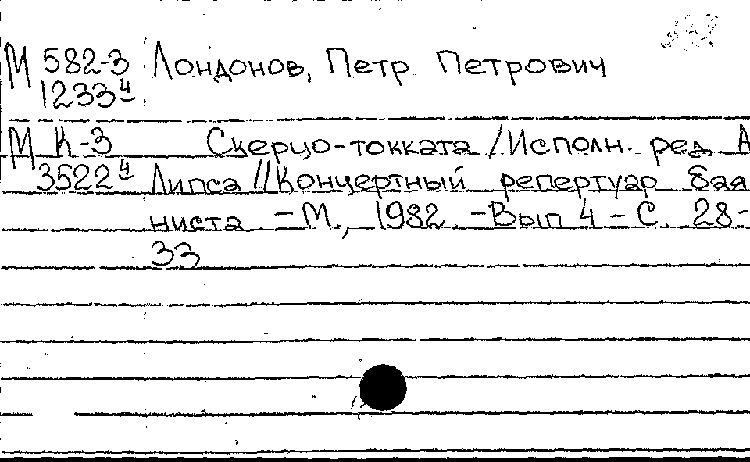 М 582-3 Лондонов, Петр Петрович
1233 4
М К-3 Скерцо-токката / Исполн. ред. А
3522 4 Липса // Концертный репертуар бая
ниста. - М., 1982. - Вып 4 - С. 28-
33